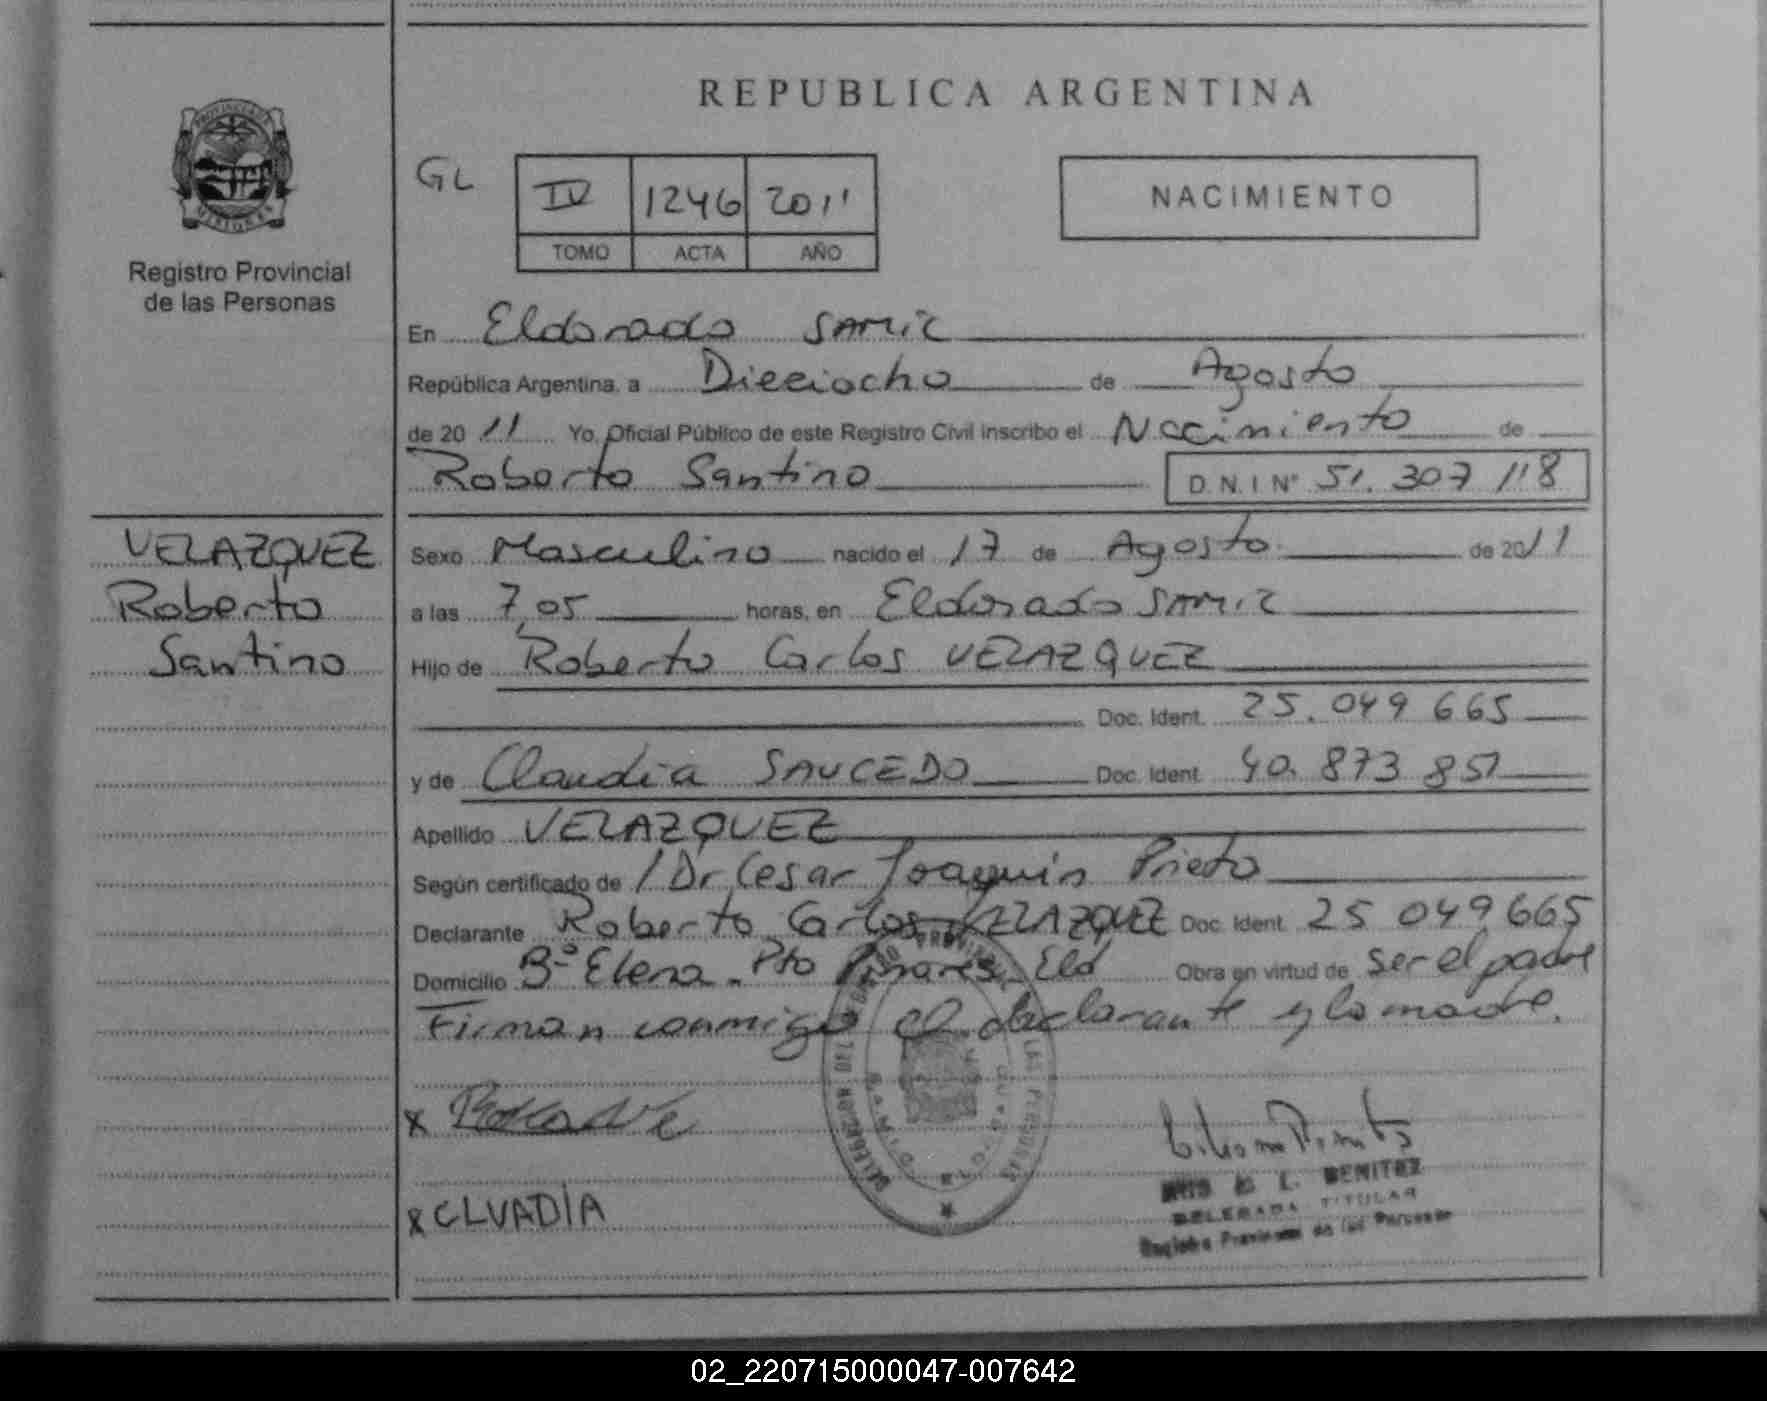 REPUBLICA ARGENTINA
PROVINCIA DE
MISIONES
Registro Provincial
de las Personas
GL
IV 1246 2011
TOMO ACTA AÑO
NACIMIENTO
En Eldorado SAMIC
República Argentina, a Dieciocho de Agosto
de 20 11 Yo, Oficial Público de este Registro Civil inscribo el Nacimiento de
Roberto Santino D.N.I Nº 51.307 118
VELAZQUEZ
Roberto
Santino
Sexo Masculino nacido el 17 de Agosto de 2011
a las 7,05 horas, en Eldorado SAMIC
Hijo de Roberto Carlos VELAZQUEZ
Doc. Ident. 25.049 665
y de Claudia SAUCEDO Doc. Ident. 40.873 851
Apellido VELAZQUEZ
Según certificado de / Dr. Cesar Joaquin Prieto
Declarante Roberto Carlos VELAZQUEZ Doc. Ident. 25 049,665
Domicilio Bº Elena - Pto Pinares - Eld Obra en virtud de ser el padre
Firman conmigo el declarante y la madre.
x
x CLUADIA
L. BENITEZ
DELEGADA TITULAR
Registro Provincial de las Personas
02_220715000047-007642